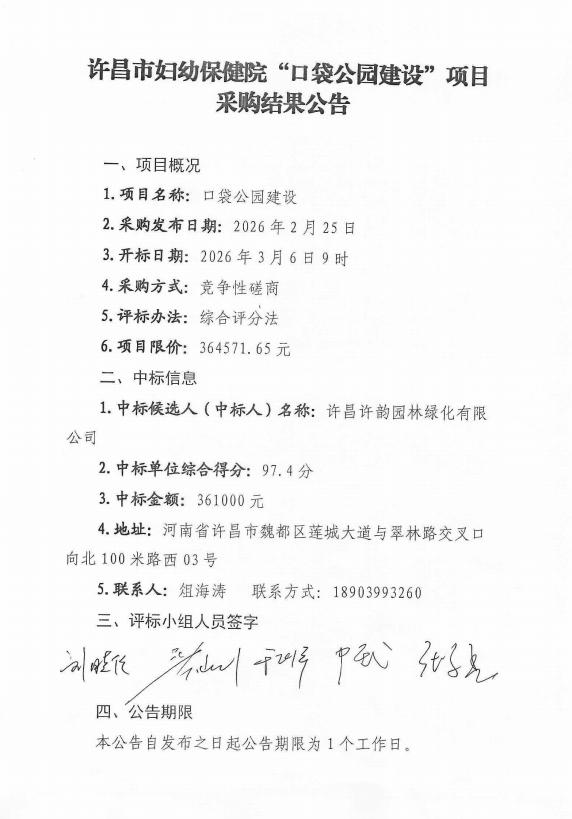 许昌市妇幼保健院“口袋公园建设”项目
采购结果公告
一、项目概况
1.项目名称：口袋公园建设
2.采购发布日期：2026年2月25日
3.开标日期：2026年3月6日9时
4.采购方式：竞争性磋商
5.评标办法：综合评分法
6.项目限价：364571.65元
二、中标信息
1.中标候选人（中标人）名称：许昌许韵园林绿化有限
公司
2.中标单位综合得分：97.4分
3.中标金额：361000元
4.地址：河南省许昌市魏都区莲城大道与翠林路交叉口
向北100米路西03号
5.联系人：俎海涛 联系方式：18903993260
三、评标小组人员签字
四、公告期限
本公告自发布之日起公告期限为1个工作日。